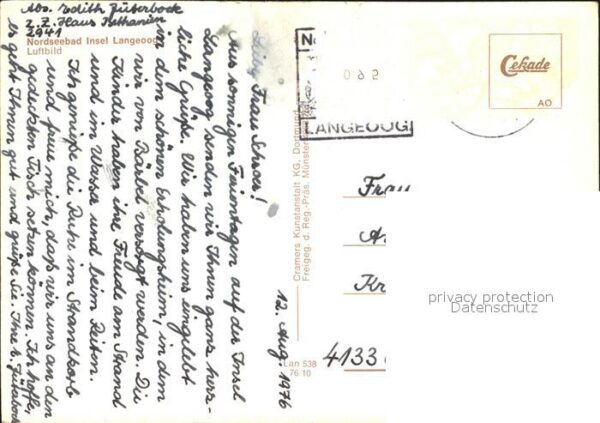 Abs. Edith Jüterbock
z. Z. Haus Bethanien
2941
Nordseebad Insel Langeoog
Luftbild
12. Aug. 1976
Liebe Frau Schroer!
Aus sonnigen Ferientagen auf der Insel
Langeoog senden wir Ihnen ganz herz-
liche Grüße. Wir haben uns eingelebt
in dem schönen Erholungsheim, in dem
wir von Bärbel versorgt werden. Die
Kinder haben ihre Freude am Strand
und im Wasser und beim Reiten.
Ich genieße die Ruhe im Strandkorb
und freue mich, daß wir uns an den
gedeckten Tisch setzen können. Ich hoffe,
es geht Ihnen gut und grüße Sie. Ihre E. Jüterbock
Cramers Kunstanstalt KG, Dortmund
Freigeg. d. Reg.-Präs. Münster
Lan 538
76 10
LANGEOOG
Cekade
AO
Frau
Kr
4133
privacy protection
Datenschutz